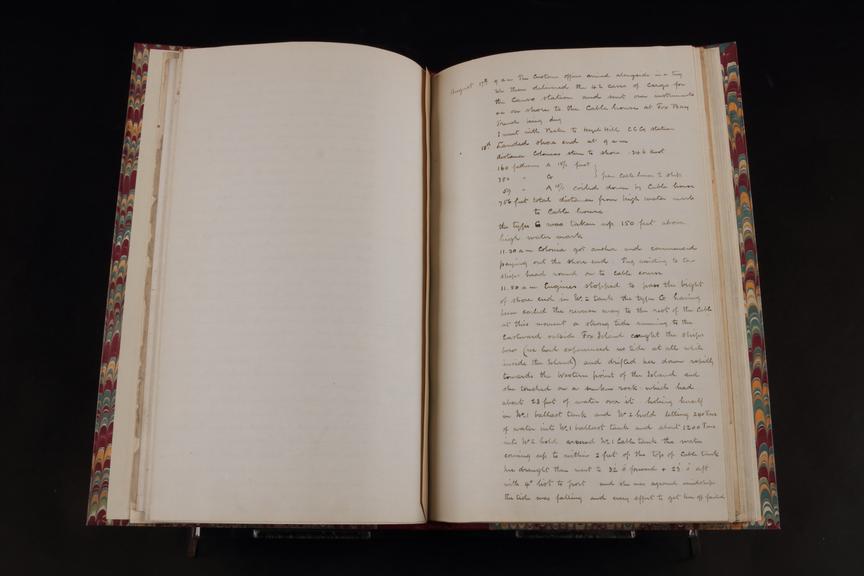 August 17th 9 am The Customs officer arrived alongside in a tug
We then delivered the 42 cases of Cargo for
the Canso station and sent our instruments
on shore to the Cable house at Fox Bay
trench being dug
I went with Peake to Hazel Hill C.C.Co station
18th Landed shore end at 9 am
distance Colonias stern to shore 246 feet
160 fathoms A
380 " Co } from Cable house to ship
59 " A coiled down by Cable house
756 feet total distance from high water mark
to Cable house
the type was taken up 150 feet above
high water mark
11.20 am Colonia got anchor and commenced
paying out the shore end. Tug assisting to tow
ships head round on to Cable course
11.50 am Engines stopped to pass the bight
of shore end in No. 2 tank the type Co having
been coiled the reverse way to the rest of the Cable
at this moment a strong tide running to the
Eastward outside Fox Island caught the ships
bow (we had experienced no tide at all while
inside the Island) and drifted her down rapidly
towards the Western point of the Island and
she touched on a sunken rock which had
about 23 feet of water over it holing herself
in No.1 ballast tank and No 2 hold letting 240 Tons
of water into No.1 ballast tank and about 1200 Tons
into No 2 hold around No.1 Cable tank the water
coming up to within 2 feet of the top of Cable tank
her draught then went to 32' 6 forward + 25' 6 aft
with 4° list to port and she was aground amidships
the tide was falling and every effort to get her off failed